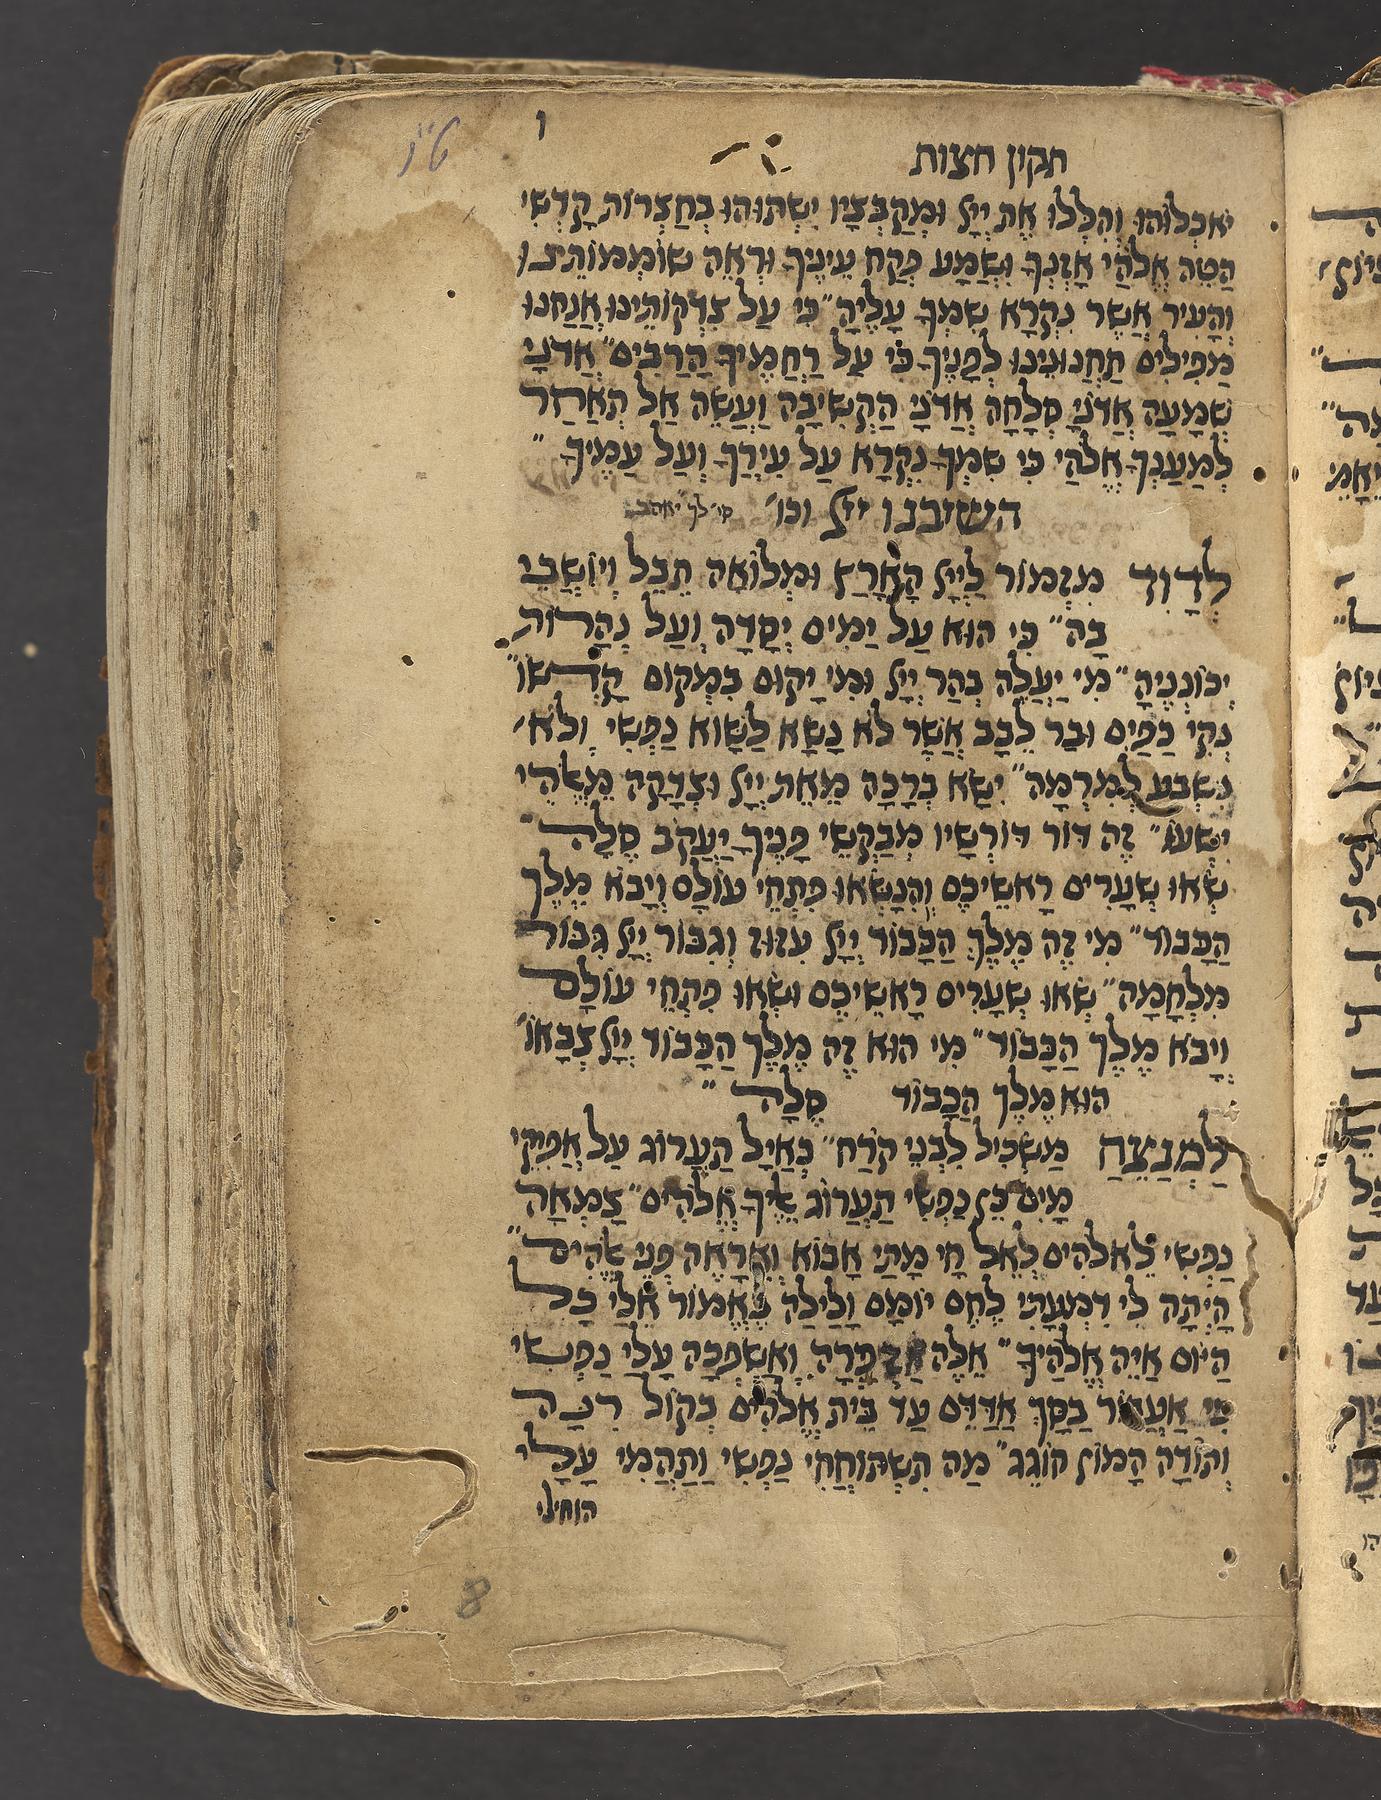 ו
תקון חצות
יֹאכְלוּהוּ וְהִלְלוּ אֶת יְיָ וּמְקַבְּצָיו יִשְׁתּוּהוּ בְּחַצְרוֹת קָדְשִׁי
הַטֵּה אֱלֹהַי אָזְנְךָ וּשְׁמָע פְּקַח עֵינֶיךָ וּרְאֵה שׁוֹמְמוֹתֵינוּ
וְהָעִיר אֲשֶׁר נִקְרָא שִׁמְךָ עָלֶיהָ״ כִּי עַל צִדְקוֹתֵינוּ אֲנַחְנוּ
מַפִּילִים תַּחֲנוּנֵינוּ לְפָנֶיךָ כִּי עַל רַחֲמֶיךָ הָרַבִּים״ אֲדֹנָי
שְׁמָעָה אֲדֹנָי סְלָחָה אֲדֹנָי הַקְשִׁיבָה וַעֲשֵׂה אַל תְּאַחַר
לְמַעַנְךָ אֱלֹהַי כִּי שִׁמְךָ נִקְרָא עַל עִירְךָ וְעַל עַמֶּיךָ״
השיבנו ייָ וכו׳
לְדָוִד מִזְמוֹר לַיְיָ הָאָרֶץ וּמְלוֹאָהּ תֵּבֵל וְיוֹשְׁבֵי
בָהּ״ כִּי הוּא עַל יַמִּים יְסָדָהּ וְעַל נְהָרוֹת
יְכוֹנְנֶיהָ״ מִי יַעֲלֶה בְּהַר יְיָ וּמִי יָקוּם בִּמְקוֹם קָדְשׁוֹ״
נְקִי כַפַּיִם וּבַר לֵבָב אֲשֶׁר לֹא נָשָׂא לַשָּׁוא נַפְשִׁי וְלֹא
נִשְׁבַּע לְמִרְמָה״ יִשָּׂא בְרָכָה מֵאֵת יְיָ וּצְדָקָה מֵאֱלֹהֵי
יִשְׁעוֹ״ זֶה דּוֹר דּוֹרְשָׁיו מְבַקְשֵׁי פָנֶיךָ יַעֲקֹב סֶלָה״
שְׂאוּ שְׁעָרִים רָאשֵׁיכֶם וְהִנָּשְׂאוּ פִּתְחֵי עוֹלָם וְיָבֹא מֶלֶךְ
הַכָּבוֹד״ מִי זֶה מֶלֶךְ הַכָּבוֹד יְיָ עִזּוּז וְגִבּוֹר יְיָ גִּבּוֹר
מִלְחָמָה״ שְׂאוּ שְׁעָרִים רָאשֵׁיכֶם וּשְׂאוּ פִּתְחֵי עוֹלָם
וְיָבֹא מֶלֶךְ הַכָּבוֹד״ מִי הוּא זֶה מֶלֶךְ הַכָּבוֹד יְיָ צְבָאוֹ׳
הוּא מֶלֶךְ הַכָּבוֹד סֶלָה״
לַמְנַצֵּחַ מַשְׂכִּיל לִבְנֵי קֹרַח״ כְּאַיָּל תַּעֲרוֹג עַל אֲפִיקֵי
מָיִם כֵּן נַפְשִׁי תַעֲרוֹג אֵלֶיךָ אֱלֹהִים״ צָמְאָה
נַפְשִׁי לֵאלֹהִים לְאֵל חָי מָתַי אָבוֹא וְאֵרָאֶה פְּנֵי אֱלֹהִים״
הָיְתָה לִּי דִמְעָתִי לֶחֶם יוֹמָם וָלַיְלָה בֶּאֱמוֹר אֵלַי כָּל
הַיּוֹם אַיֵּה אֱלֹהֶיךָ״ אֵלֶּה אֶזְכְּרָה וְאֶשְׁפְּכָה עָלַי נַפְשִׁי
כִּי אֶעֱבוֹר בַּסָּךְ אֶדַּדֵּם עַד בֵּית אֱלֹהִים בְּקוֹל רִנָּה
וְתוֹדָה הָמוֹן חוֹגֵג״ מַה תִּשְׁתּוֹחֲחִי נַפְשִׁי וַתֶּהֱמִי עָלָי
הוחילי
8